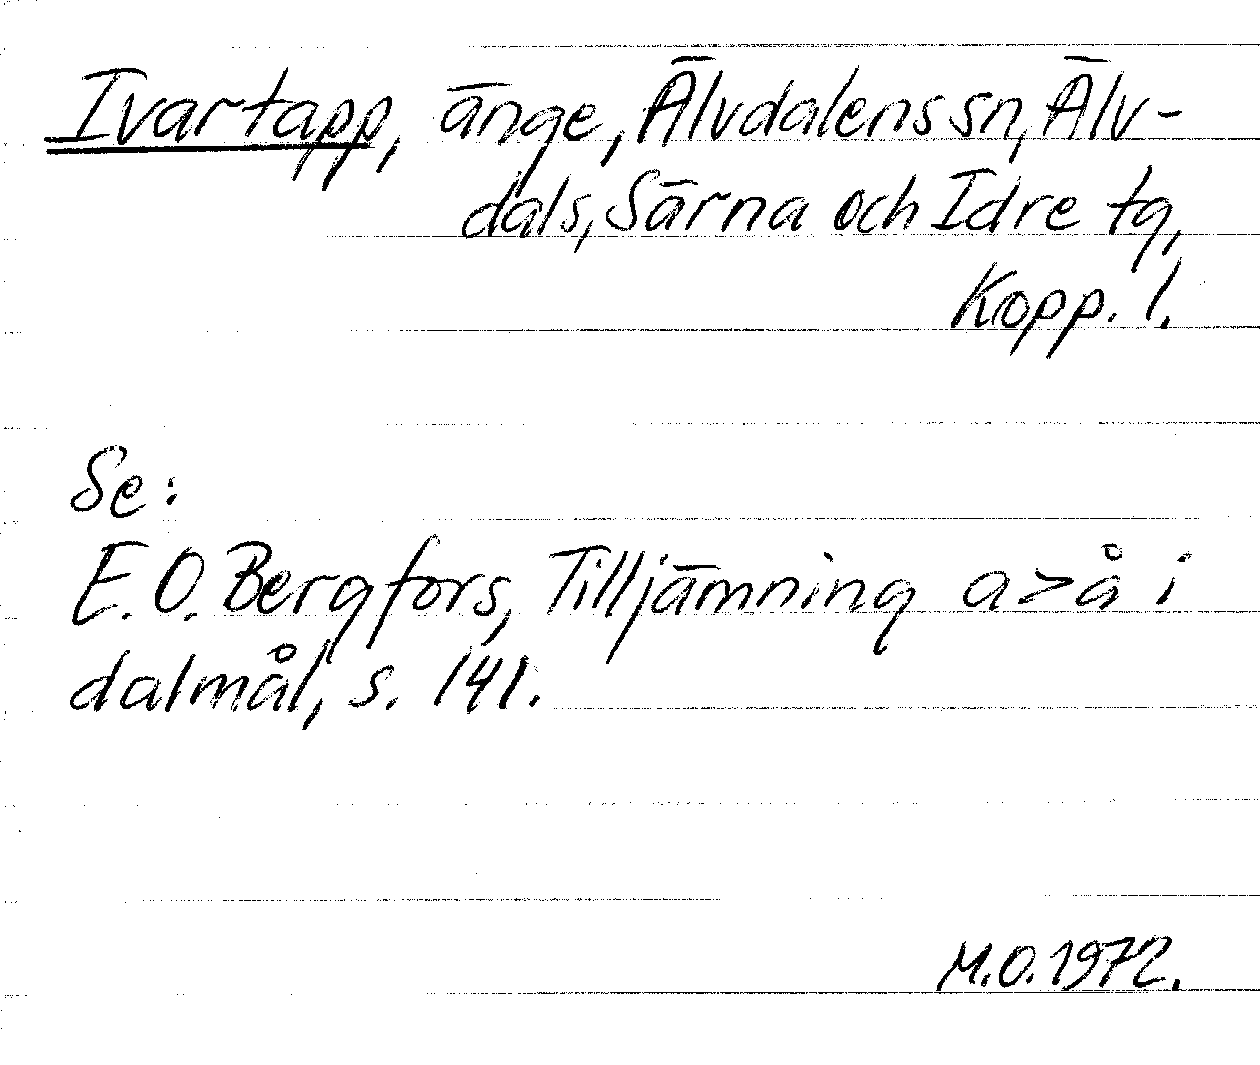 Ivartapp, änge, Älvdalens sn, Älv-
dals, Särna och Idre tg,
Kopp. l.
Se:
E. O. Bergfors, Tilljämning a>å i
dalmål, s. 141.
M.O. 1972.